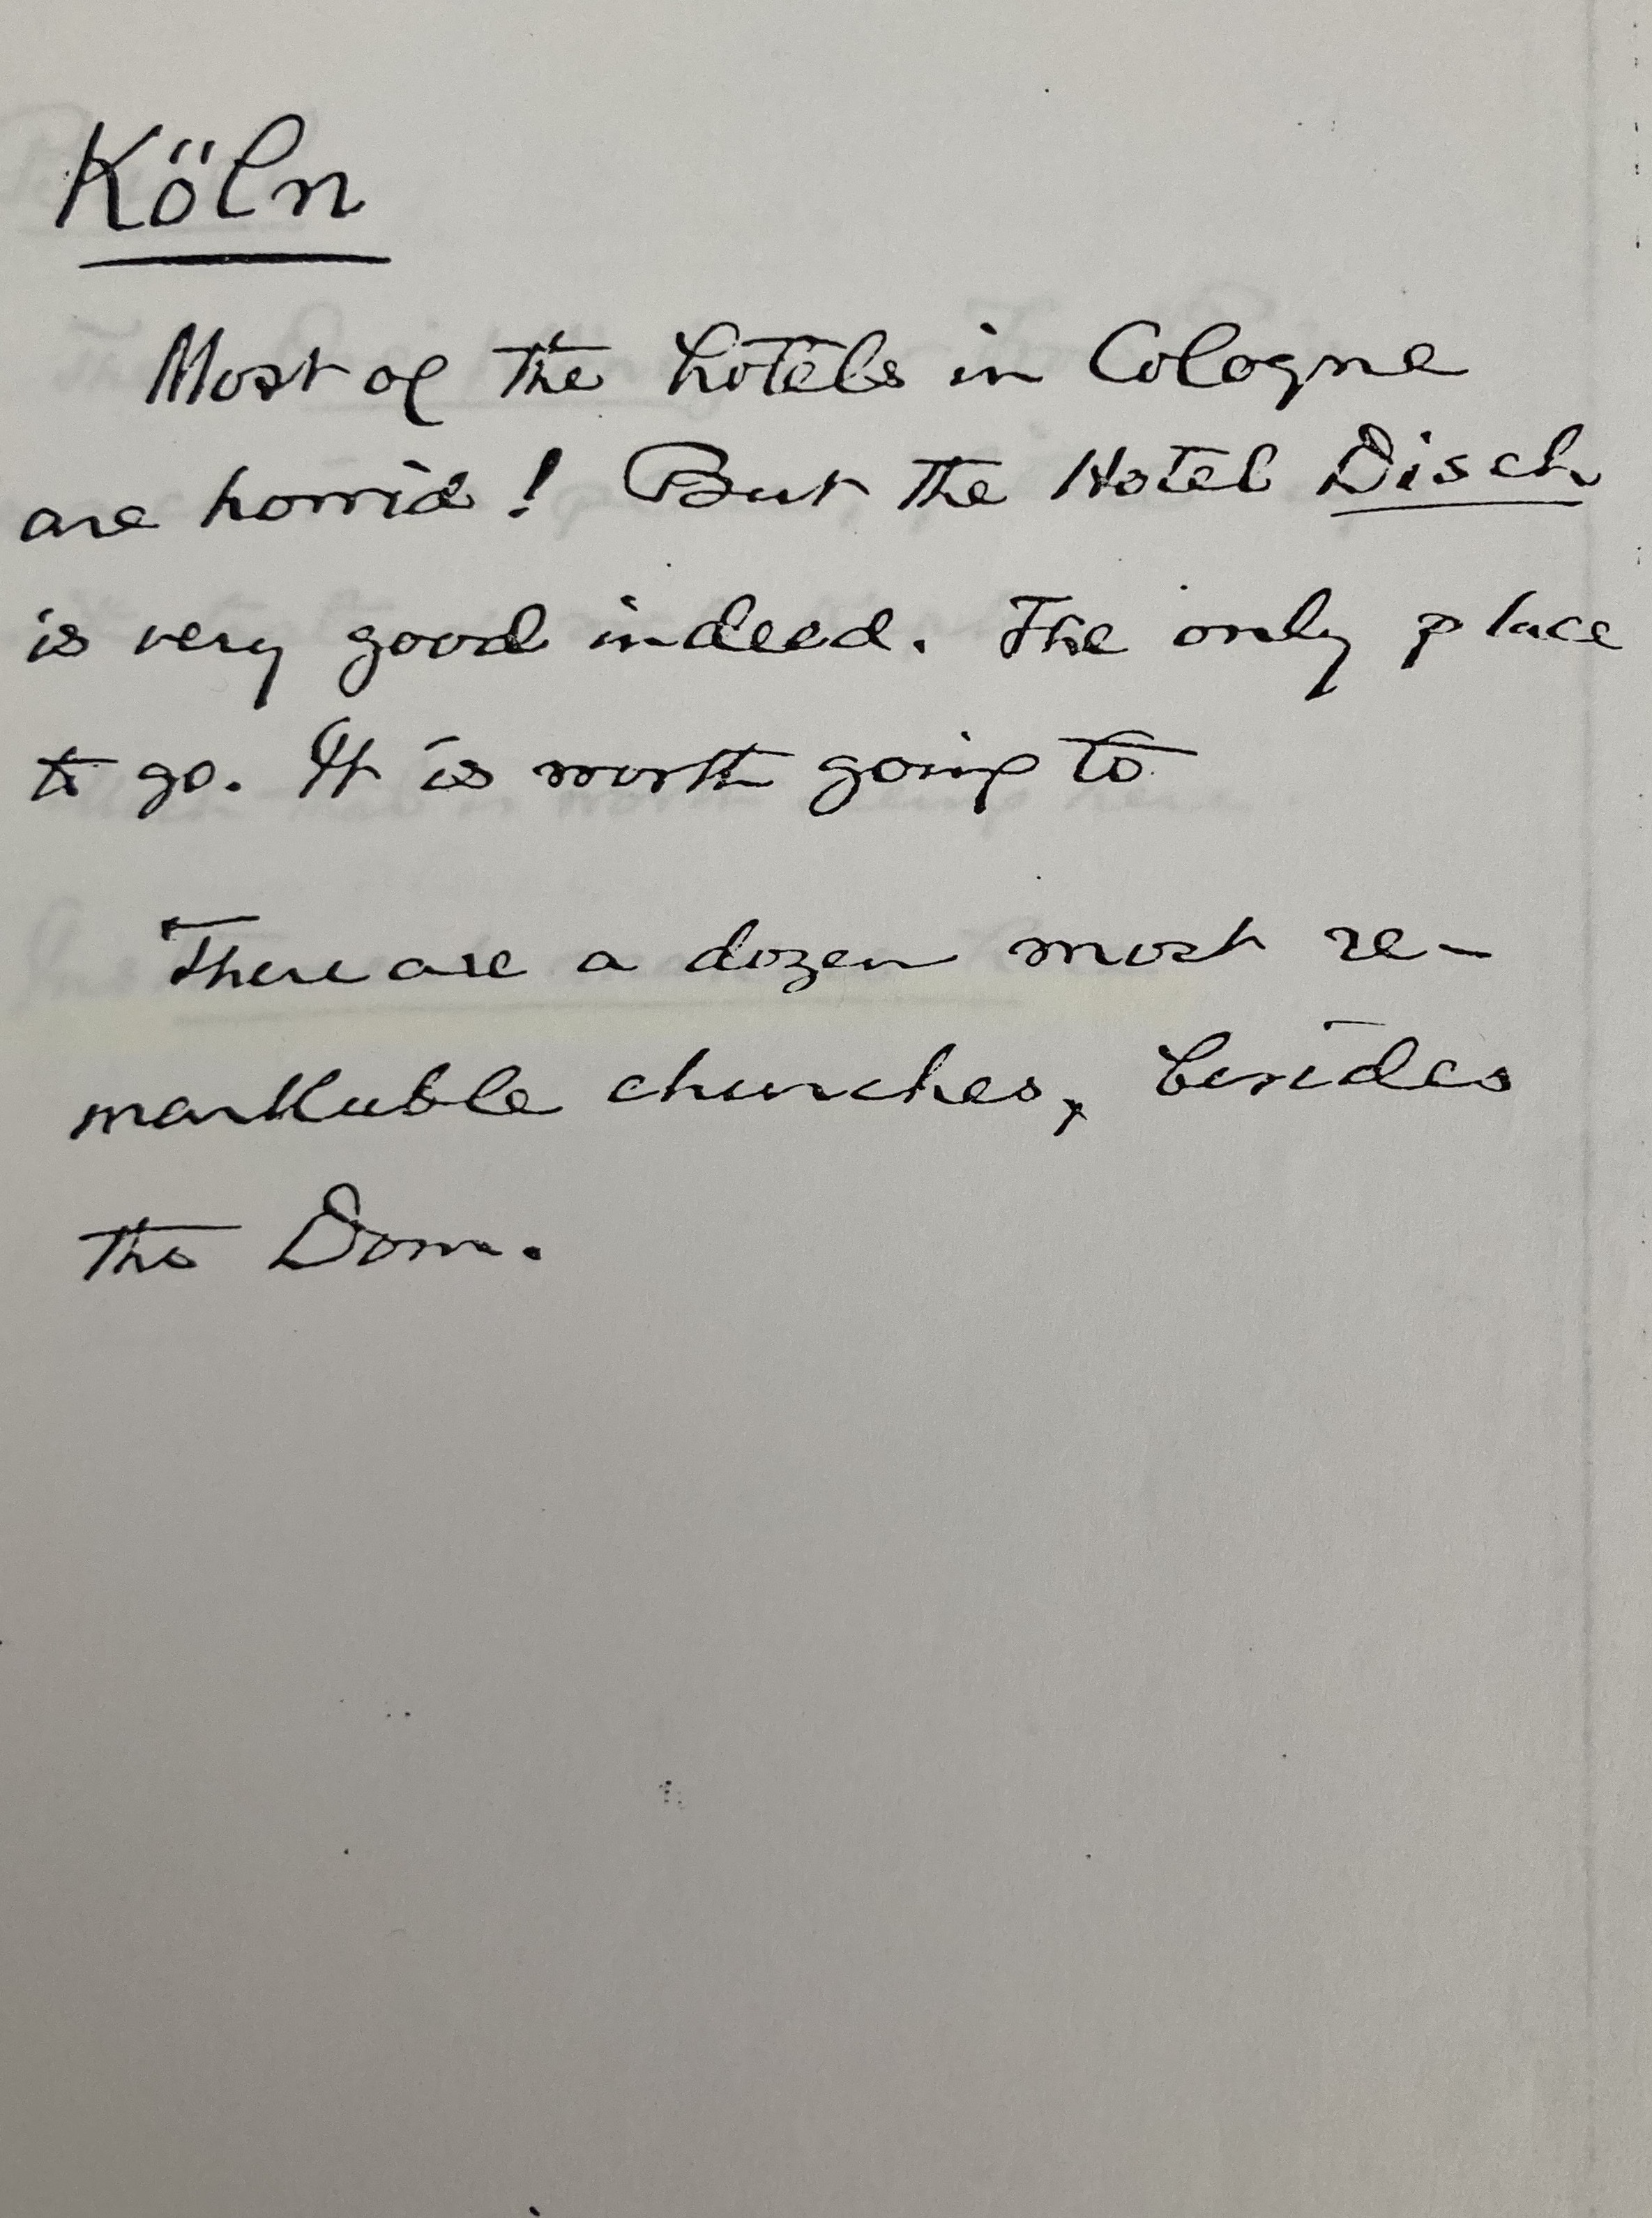 Köln
Most of the hotels in Cologne
are horrid! But the Hotel Disch
is very good indeed. The only place
to go. It is worth going to
There are a dozen most re-
markable churches, besides
the Dom.